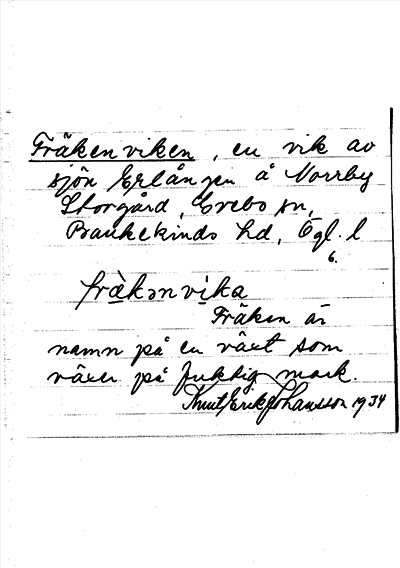 Fräkenviken, en vik av
sjön Erlången å Norrby
Storgård, Grebo sn,
Bankekinds hd, Ögl. l
6.
fràkənvika
Fräken är
namn på en växt som
växer på fuktig mark.
Knut Erik Johansson 1934